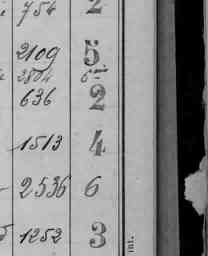 754 2
2109 5
2804 6
636 2
1513 4
2536 6
1252 3
int.